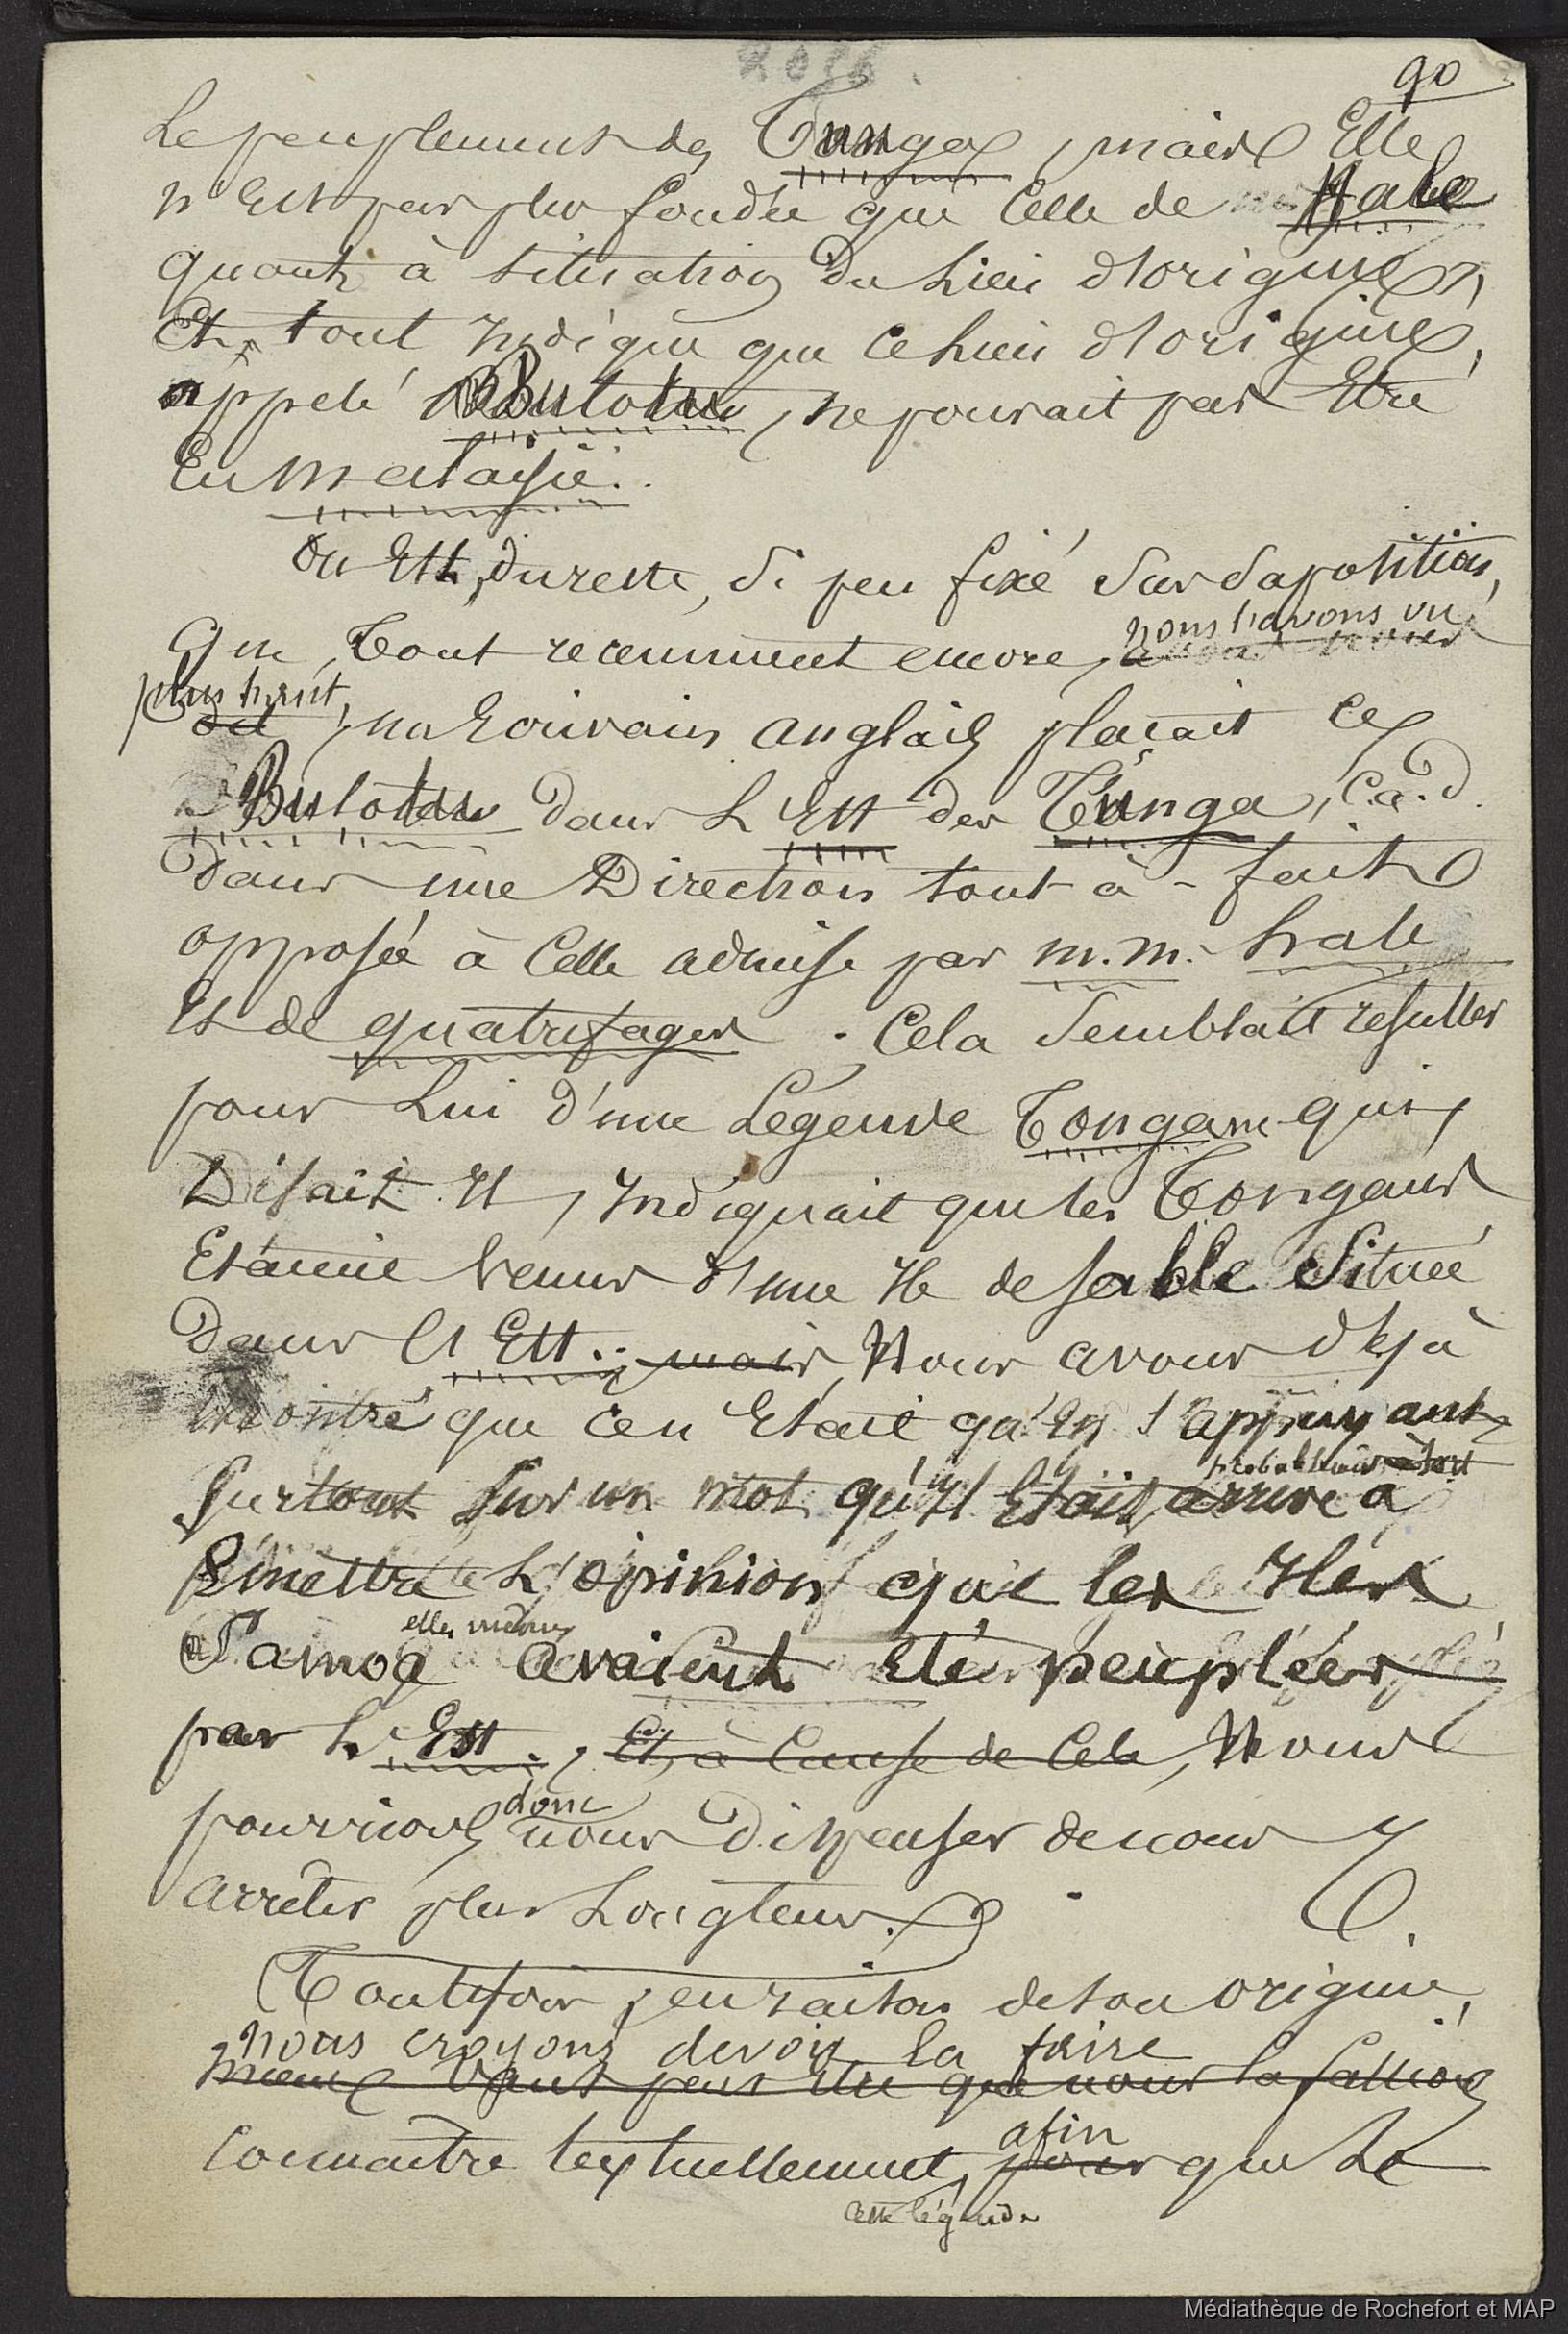 2036.
90
Le peuplement des Tunga, mais Elle
n'Est pas plus fondée que Celle de Hale
quant à situation du Lieu d'origine,
Et tout Indique que ce Lieu d'origine,
appelé Bulotu, ne pouvait pas Etre
En Malaisie.
On Est, du reste, si peu fixé Sur Sa position,
nous l'avons vu
que, Tout recemment encore,
plus haut,
un Ecrivain anglais plaçait ce
Bulotu dans L'Est des Tunga, c.a.d.
Dans une Direction tout-à-fait
opposée à Celle admise par m.m. hale
Et de quatrefages. Cela Semblait resulter
pour Lui d'une Légende Tongane qui,
Disait Il, Indiquait que les Tongans
Etaient venus d'une Ile de Sable Située
Dans l'Est. ; mais Nous avons déjà
montré que ce n'Etait qu'En s'appuyant
Surtout Sur un mot qu'Il Etait arrivé à
Emettre L'opinion que les Iles
elles mêmes
Samoa avaient été peuplées
par L'Est, Et, à Cause de Cela, Nous
donc
pourrions nous Dispenser de nous y
arrêter plus Longtems.
Toutefois, en raison de son origine,
nous croyons devoir la faire
mieux Vaut peut Etre que nous la fassions
Connaître textuellement,
afin
pour que Le
cette légende
Médiathèque de Rochefort et MAP